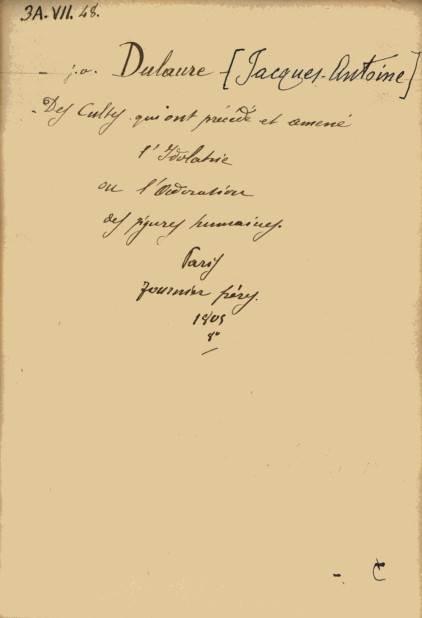 3A-VII. 48.
- j.a. Dulaure - [Jacques-Antoine]
- Des Cultes qui ont précédé et amené
l'Idolatrie
ou l'Adoration
des figures humaines.
Paris
Fournier frères.
1805
8°
- C